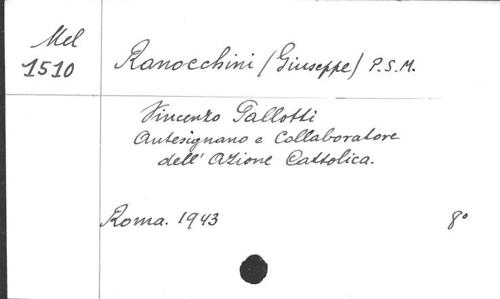 Mel
1510
Ranocchini (Giuseppe) P.S.M.
Vincenzo Pallotti
Antesignano e Collaboratore
dell' Azione Cattolica.
Roma. 1943
8°